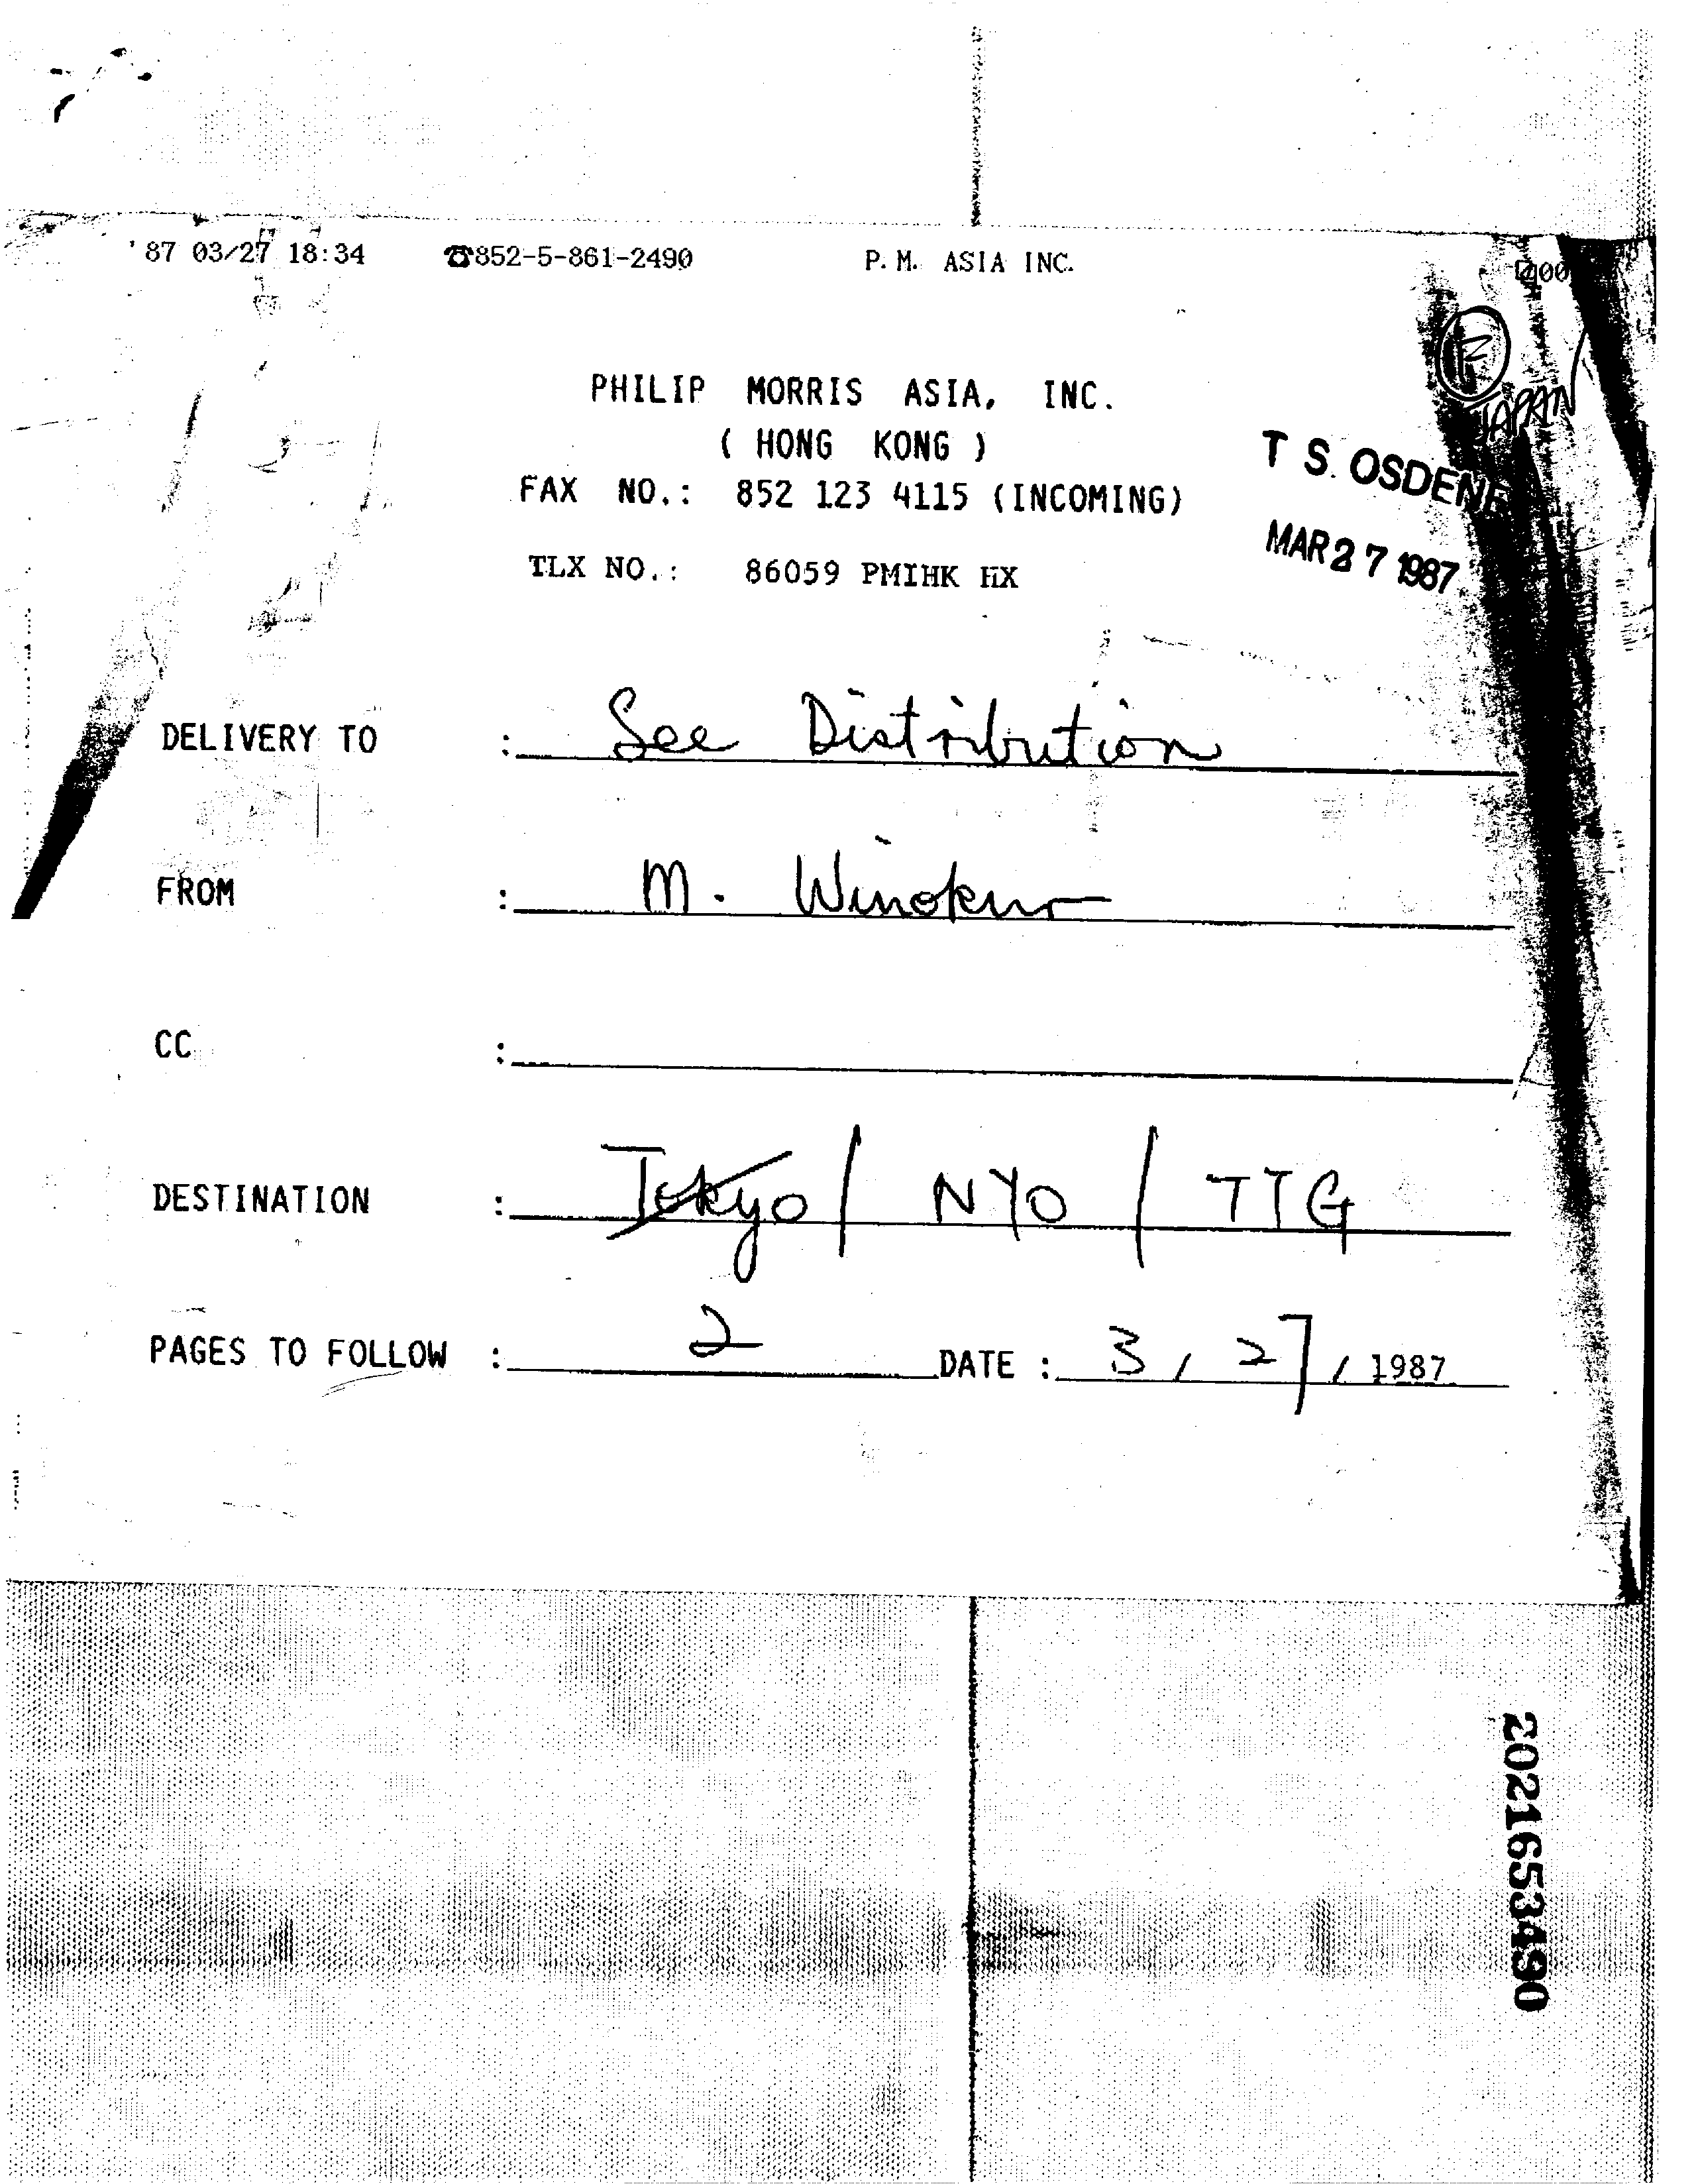 '87 03/27 18:34 ☎852-5-861-2490 P.M. ASIA INC.
PHILIP MORRIS ASIA, INC.
( HONG KONG )
JAPAN
T S. OSDENE
FAX NO.: 852 123 4115 (INCOMING)
MAR 27 1987
TLX NO.: 86059 PMIHK HX
DELIVERY TO : See Distribution
FROM : M. Winokur
CC :
DESTINATION : Tokyo / NYO / TTG
PAGES TO FOLLOW : 2 DATE : 3 / 27 / 1987
2021653490